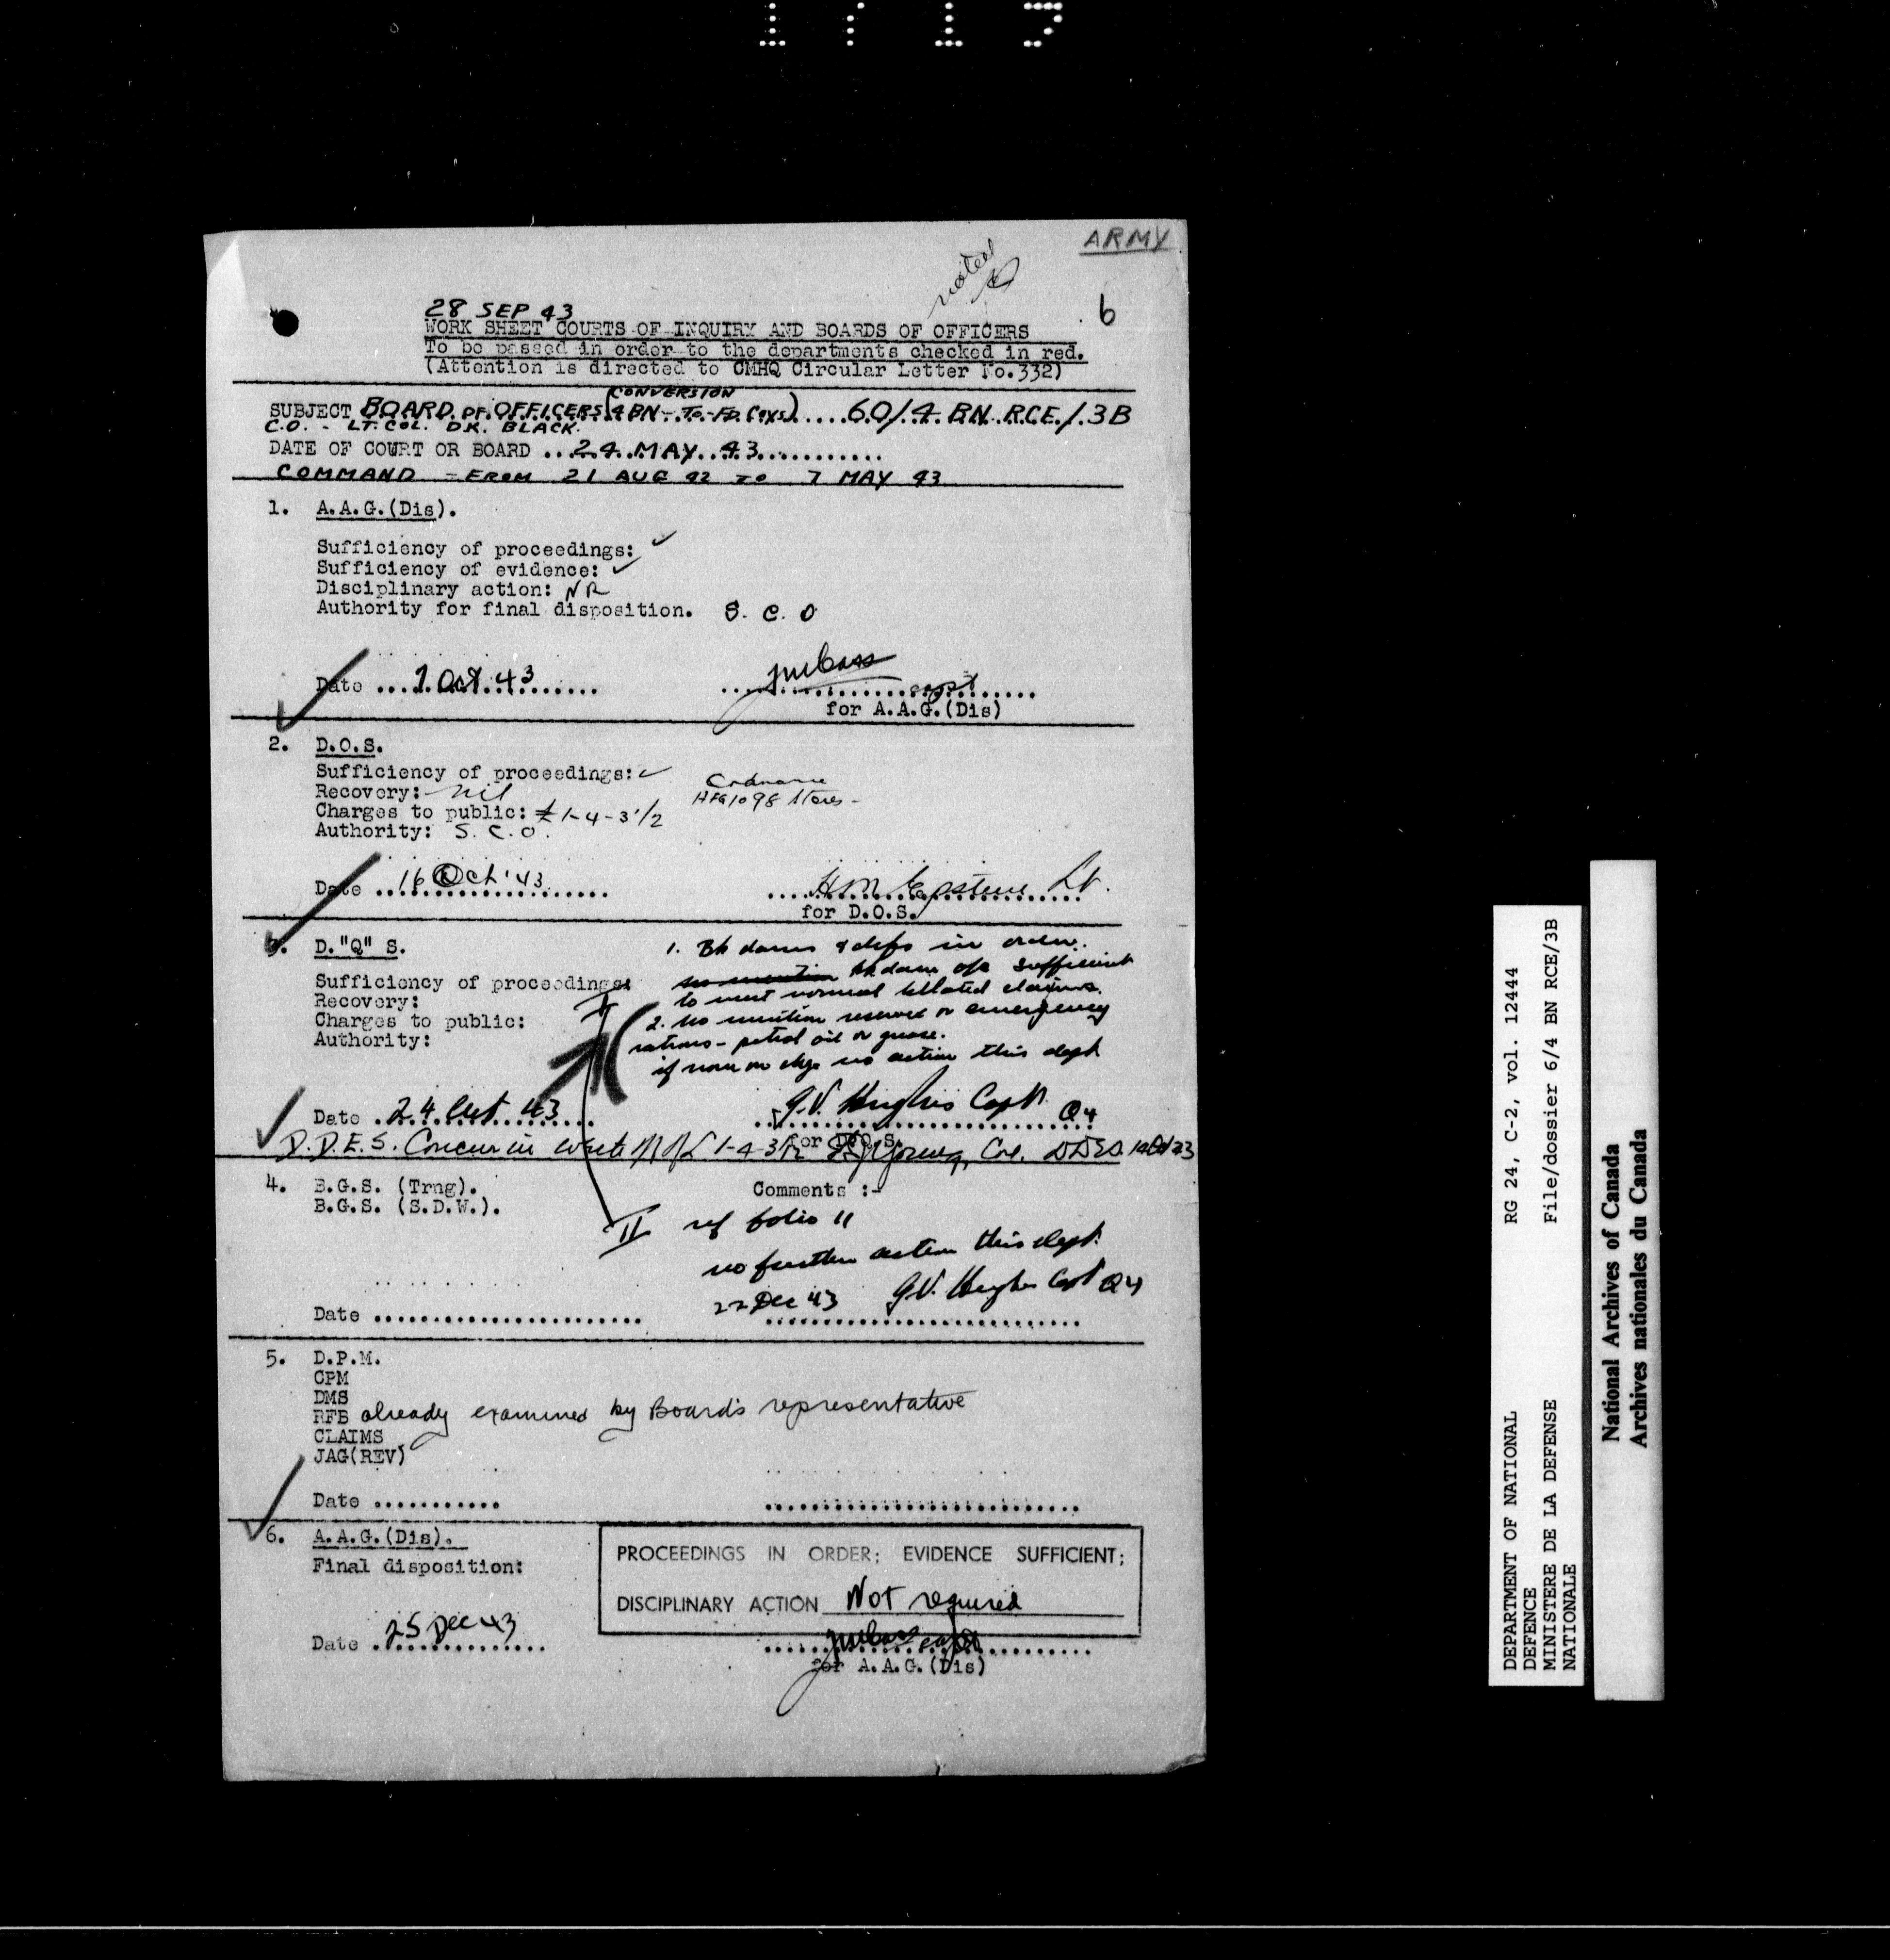 1/13
ARMY
noted
6
28 SEP 43
WORK SHEET COURTS OF INQUIRY AND BOARDS OF OFFICERS
To be passed in order to the departments checked in red.
(Attention is directed to CMHQ Circular Letter No.332)
(CONVERSION
SUBJECT BOARD OF OFFICERS 4 BN - TO - FD Coys) .... 60/4 BN RCE/3B
C.O. - LT. COL. D.K. BLACK.
DATE OF COURT OR BOARD ...24 MAY 43............
COMMAND - FROM 21 AUG 42 TO 7 MAY 43
1. A.A.G.(Dis).
Sufficiency of proceedings: ✓
Sufficiency of evidence: ✓
Disciplinary action: NR
Authority for final disposition. S. C. O
Date ...1 Oct 43...... capt
for A.A.G.(Dis)
2. D.O.S.
Sufficiency of proceedings: ✓ Ordnance
Recovery: nil HFG1098 Stores -
Charges to public: £1-4-3 1/2
Authority: S. C. O.
Date ..16 Oct '43........ Lt.
for D.O.S.
3. D."Q" S. 1. Bk dams & defs in order.
Sufficiency of proceedings: no mention bk dam ofs sufficient
Recovery: I to meet normal billeted claims.
Charges to public: 2. no mention reserve or emergency
Authority: rations - petrol oil or grease.
if none on chge no action this dept
Date .24 Oct 43..... G.V. Hughes Capt Q4
for D.O.S.
D.D.E.S. Concur in write off of £1-4-3 1/2 Col. DDES
4. B.G.S. (Trng). Comments :-
B.G.S. (S.D.W.).
II ref folio 11
no further action this dept.
22 Dec 43 G.V. Hughes Capt Q4
Date ........................
5. D.P.M.
CPM
DMS
RFB already examined by Board's representative
CLAIMS
JAG(REV)
Date ...........
6. A.A.G.(Dis).
Final disposition:
PROCEEDINGS IN ORDER; EVIDENCE SUFFICIENT;
DISCIPLINARY ACTION Not required
Date 25 Dec 43 capt
for A.A.G.(Dis)
DEPARTMENT OF NATIONAL DEFENCE
MINISTERE DE LA DEFENSE NATIONALE
RG 24, C-2, vol. 12444
File/dossier 6/4 BN RCE/3B
National Archives of Canada
Archives nationales du Canada